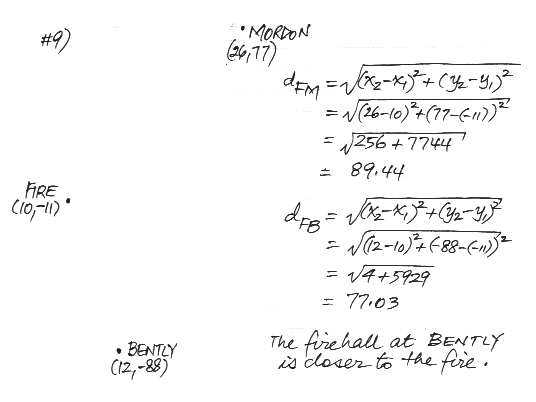 #9)
• MORDON
(26,77)
d_FM = √(x₂-x₁)²+(y₂-y₁)²
= √(26-10)²+(77-(-11))²
= √256+7744
= 89.44
FIRE
(10,-11) •
d_FB = √(x₂-x₁)²+(y₂-y₁)²
= √(12-10)²+(-88-(-11))²
= √4+5929
= 77.03
• BENTLY
(12,-88)
The firehall at BENTLY
is closer to the fire.